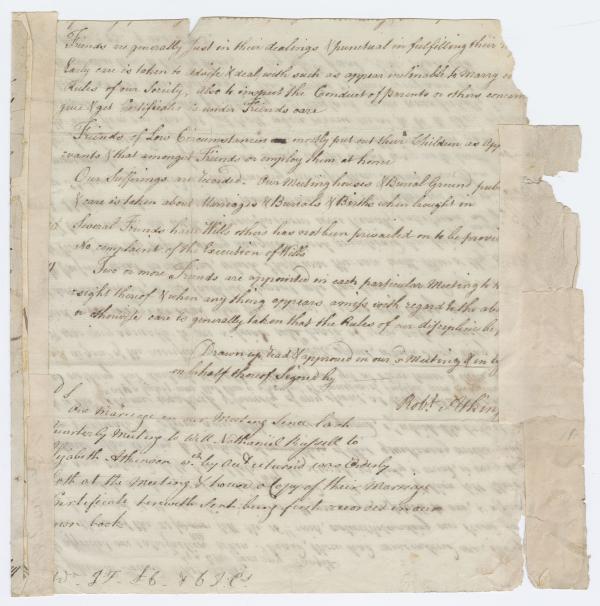 Friends are generally just in their dealings & punctual in fulfilling their
Early care is taken to advise & deal with such as appear inclinable to Marry
Rules of our Society, also to inspect the Conduct of Parents or others concern
give & get Certificates is under Friends care
Friends of Low Circumstances mostly put out their Children as App
vants & that amongst Friends or employ them at home
Our Sufferings are recorded. Our Meeting houses & Burial Ground
& care is taken about Marriages & Burials & Births when brought in
Several Friends have Wills others has not been prevailed on to be provi
No complaint of the Execution of Wills
Two or more Friends are appointed in each particular Meeting to
sight thereof & when any thing appears amiss with regard to the abo
or otherwise care is generally taken that the Rules of our discipline be
Drawn up read & approved in our Meeting & in
on behalf thereof Signed by
Robt. Atkin
One marriage in our Meeting Since last
Quarterly Meeting to Will Nathaniel Russell to
Elizabeth Atkinson by Acct. returned was Orderly
both at the Meeting & house a Copy of their Marriage
Certificate herewith Sent being first recorded in our
book